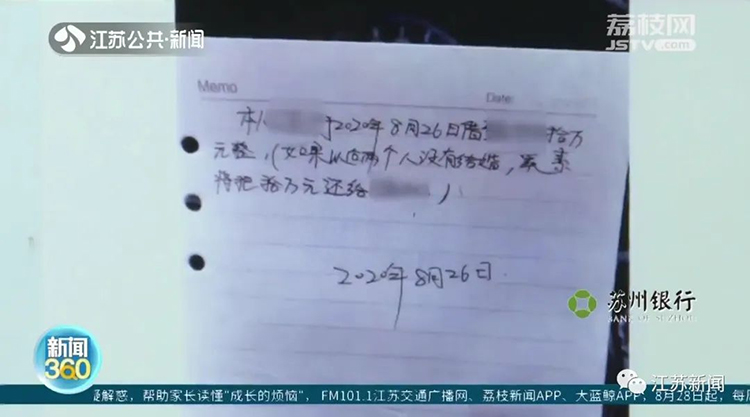 江苏公共·新闻
荔枝网
JSTV.com
Memo
Date:
本人 于2020年8月26日借 拾万
元整,(如果以后两个人没有结婚,
将把拾万元还给 )
2020年8月26日.
苏州银行
BANK OF SUZHOU
新闻
360
江苏新闻
疑解惑,帮助家长读懂“成长的烦恼”,FM101.1江苏交通广播网、荔枝新闻APP、大蓝鲸APP,8月28日起,每